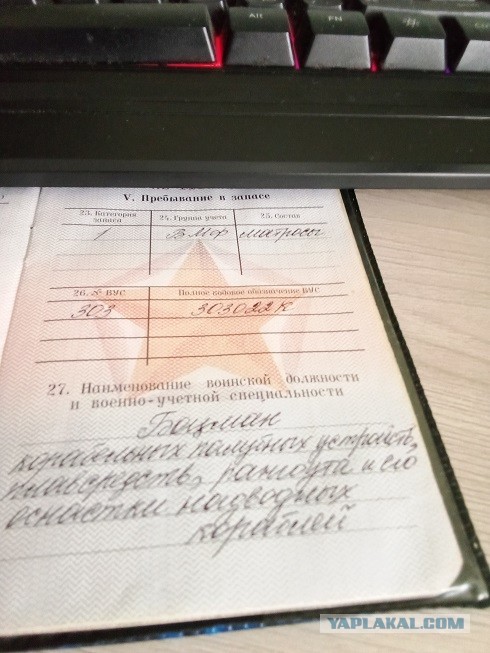 Alt
FN
V. Пребывание в запасе
23. Категория запаса
24. Группа учета
25. Состав
1 ВМФ матросы
26. № ВУС
Полное кодовое обозначение ВУС
303 303022К
27. Наименование воинской должности
и военно-учетной специальности
Боцман
корабельных палубных устройств,
плавсредств, рангоута и его
оснастки надводных
кораблей
YAPLAKAL.COM